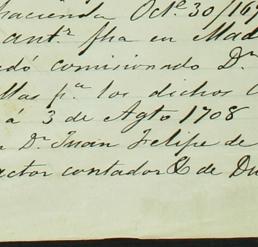 hacienda Oct.e 30/167
ant.r fha en Mad
edó comisionado D.n
llas p.a los dichos
á 3 de Agto 1708
n D.n Juan Felipe de
actor contador & de Du